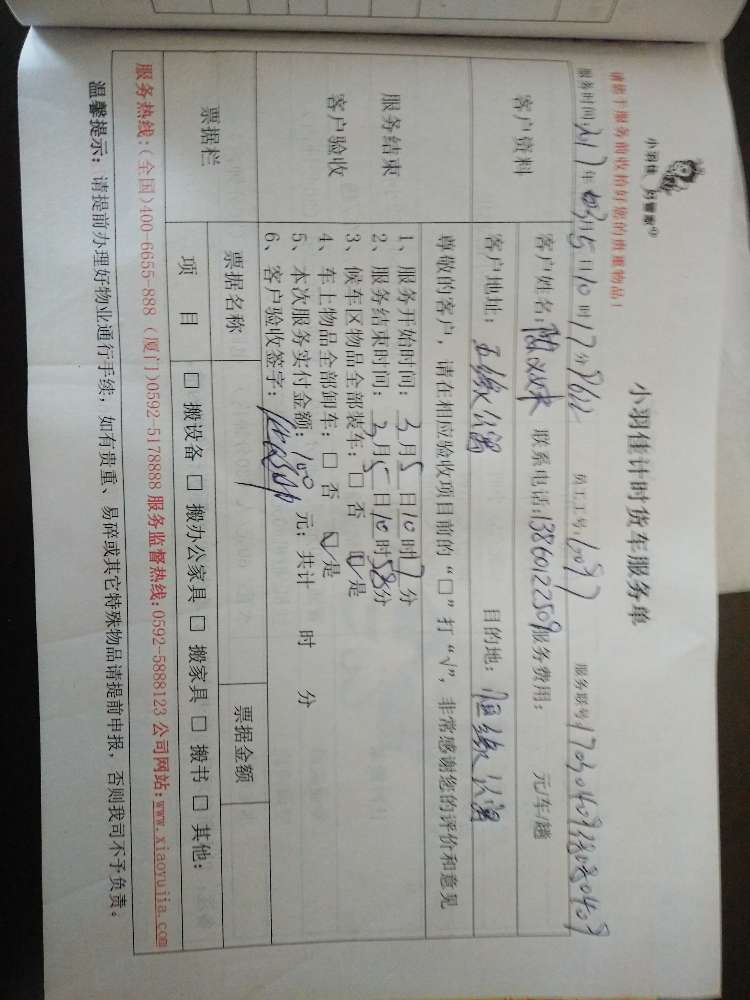 小羽佳 好管家
小羽佳计时货车服务单
请您于服务前收拾好您的贵重物品！
服务时间: 2017年03月5日10时17分 员工工号: 6097 服务联号:
客户资料
客户姓名: 联系电话: 13860122509 服务费用: 元/车/趟
客户地址: 目的地: 恒缘公寓
服务结束
客户验收
尊敬的客户，请在相应验收项目前的“□”打“√”，非常感谢您的评价和意见
1、服务开始时间: 3月5日10时17分
2、服务结束时间: 3月5日10时58分
3、候车区物品全部装车: □ 否 ☑是
4、车上物品全部卸车: □ 否 ☑是
5、本次服务实付金额: 100 元; 共计 时 分
6、客户验收签字:
票据栏
票据名称 票据金额
项 目 □ 搬设备 □ 搬办公家具 □ 搬家具 □ 搬书 □ 其他:
服务热线:(全国)400-6655-888 (厦门)0592-5178888 服务监督热线:0592-5888123 公司网站:www.xiaoyujia.com
温馨提示: 请提前办理好物业通行手续，如有贵重、易碎或其它特殊物品请提前申报，否则我司不予负责。